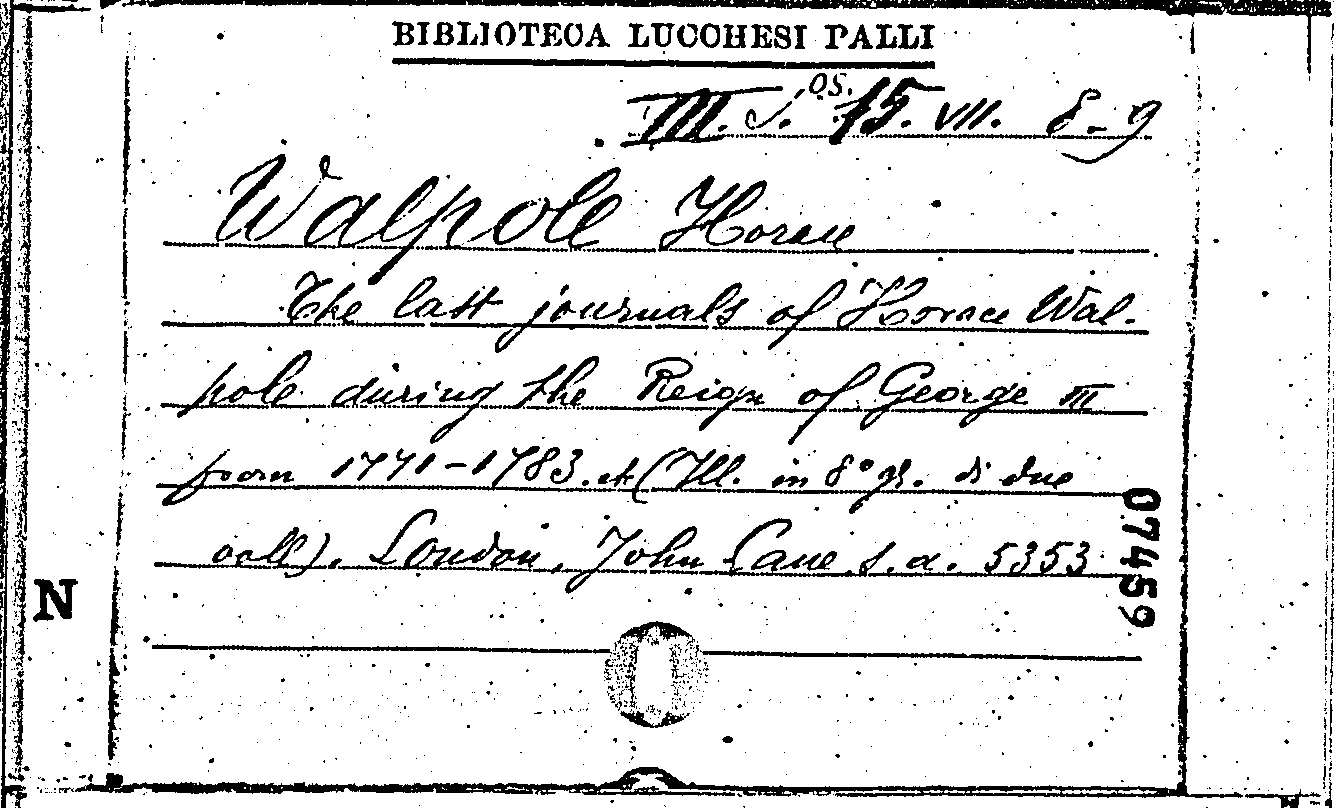 BIBLIOTECA LUCCHESI PALLI
OS.
III. S. 15. VII. 8-9
Walpole Horace
The last journals of Horace Wal-
pole during the Reign of George III
from 1771-1783. et (Ill. in 8° gr. di due
voll). London, John Lane s. a. 5353
07459
N